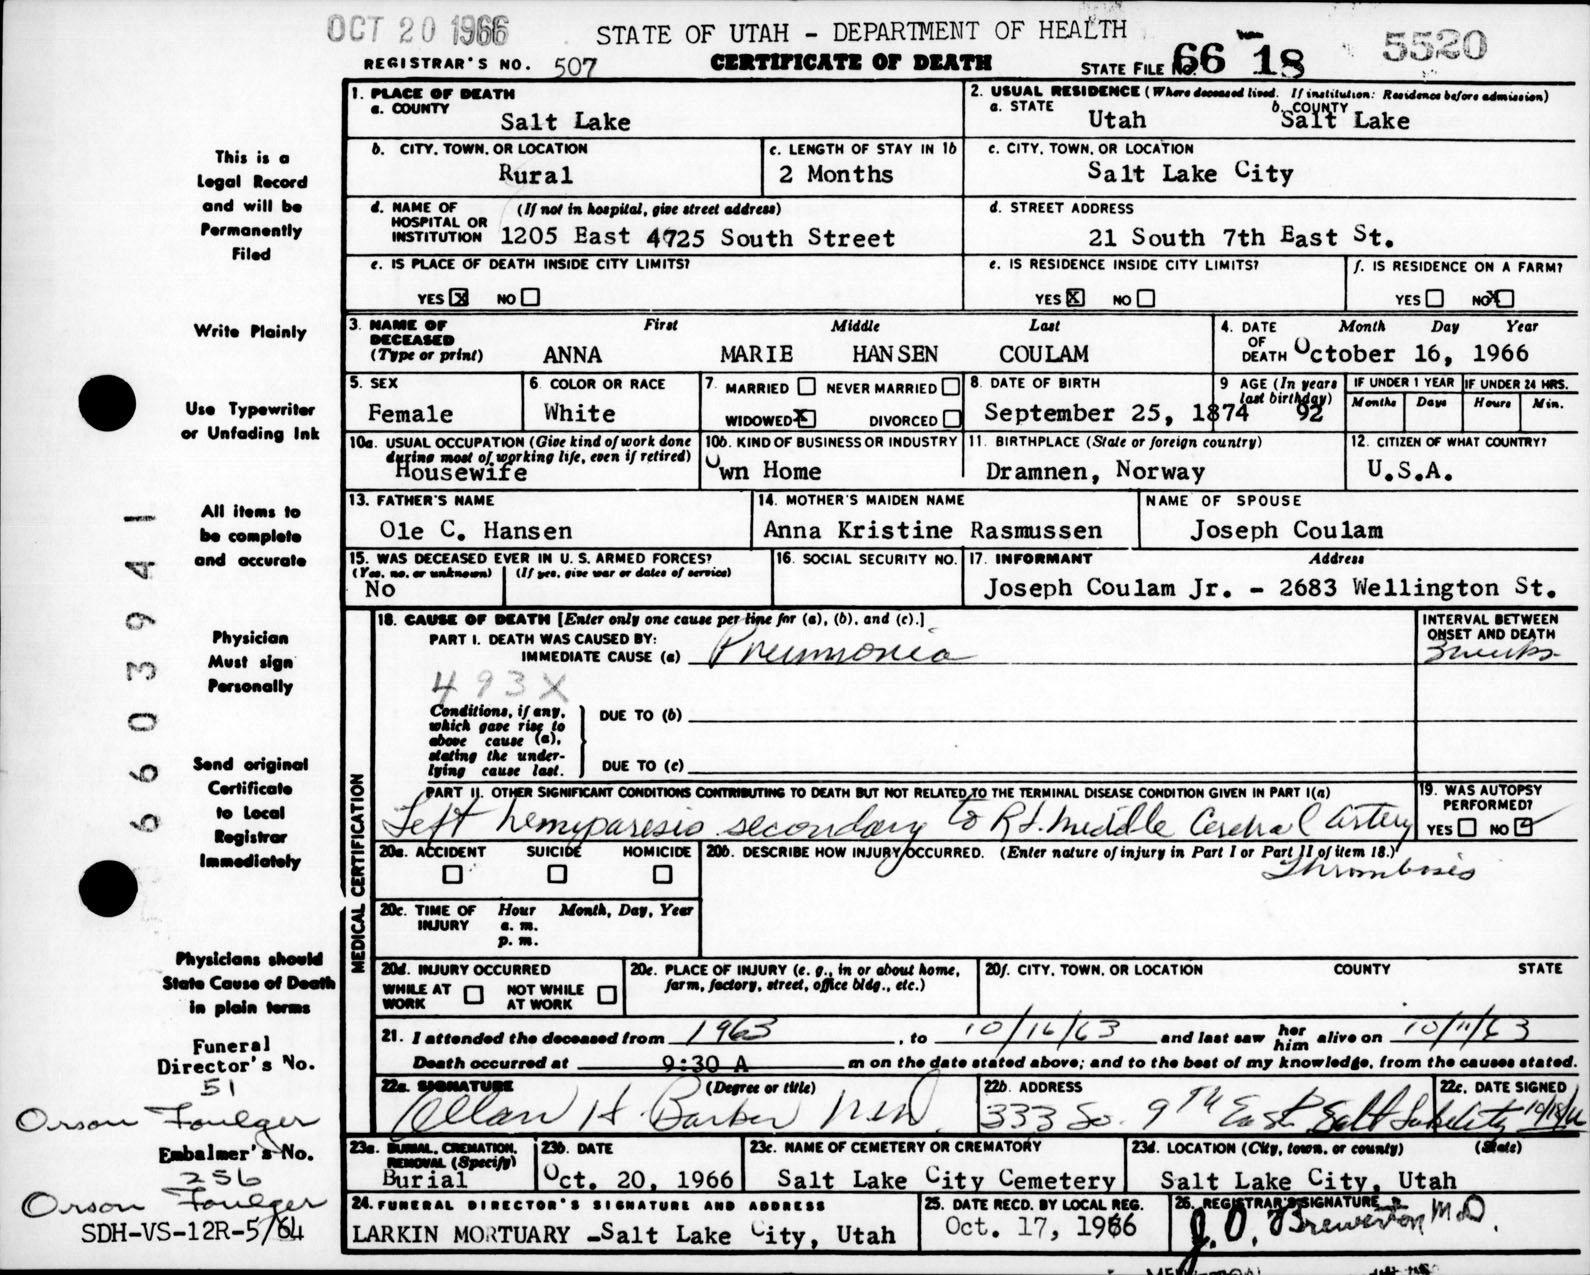 OCT 20 1966
STATE OF UTAH - DEPARTMENT OF HEALTH
REGISTRAR'S NO. 507
CERTIFICATE OF DEATH
STATE FILE NO. 66 18 5520
1. PLACE OF DEATH
a. COUNTY
Salt Lake
2. USUAL RESIDENCE (Where deceased lived. If institution: Residence before admission)
a. STATE
Utah
b. COUNTY
Salt Lake
b. CITY, TOWN, OR LOCATION
Rural
c. LENGTH OF STAY IN 1b
2 Months
c. CITY, TOWN, OR LOCATION
Salt Lake City
d. NAME OF HOSPITAL OR INSTITUTION
(If not in hospital, give street address)
1205 East 4725 South Street
d. STREET ADDRESS
21 South 7th East St.
e. IS PLACE OF DEATH INSIDE CITY LIMITS?
YES X NO
e. IS RESIDENCE INSIDE CITY LIMITS?
YES X NO
f. IS RESIDENCE ON A FARM?
YES NO X
3. NAME OF DECEASED (Type or print)
First Middle Last
ANNA MARIE HANSEN COULAM
4. DATE OF DEATH
Month Day Year
October 16, 1966
5. SEX
Female
6. COLOR OR RACE
White
7. MARRIED NEVER MARRIED
WIDOWED X DIVORCED
8. DATE OF BIRTH
September 25, 1874
9 AGE (In years last birthday)
92
IF UNDER 1 YEAR
Months Days
IF UNDER 24 HRS.
Hours Min.
10a. USUAL OCCUPATION (Give kind of work done during most of working life, even if retired)
Housewife
10b. KIND OF BUSINESS OR INDUSTRY
Own Home
11. BIRTHPLACE (State or foreign country)
Dramnen, Norway
12. CITIZEN OF WHAT COUNTRY?
U.S.A.
13. FATHER'S NAME
Ole C. Hansen
14. MOTHER'S MAIDEN NAME
Anna Kristine Rasmussen
NAME OF SPOUSE
Joseph Coulam
15. WAS DECEASED EVER IN U. S. ARMED FORCES?
(Yes, no, or unknown) (If yes, give war or dates of service)
No
16. SOCIAL SECURITY NO.
17. INFORMANT Address
Joseph Coulam Jr. - 2683 Wellington St.
MEDICAL CERTIFICATION
18. CAUSE OF DEATH [Enter only one cause per line for (a), (b), and (c).]
PART I. DEATH WAS CAUSED BY:
IMMEDIATE CAUSE (a) Pneumonia
INTERVAL BETWEEN ONSET AND DEATH
3 weeks
493X
Conditions, if any, which gave rise to above cause (a), stating the underlying cause last.
DUE TO (b)
DUE TO (c)
PART II. OTHER SIGNIFICANT CONDITIONS CONTRIBUTING TO DEATH BUT NOT RELATED TO THE TERMINAL DISEASE CONDITION GIVEN IN PART I(a)
Left hemiparesis secondary to Rt. middle Cerebral Artery
Thrombosis
19. WAS AUTOPSY PERFORMED?
YES NO
20a. ACCIDENT SUICIDE HOMICIDE
20b. DESCRIBE HOW INJURY OCCURRED. (Enter nature of injury in Part I or Part II of item 18.)
20c. TIME OF INJURY
Hour Month, Day, Year
a. m.
p. m.
20d. INJURY OCCURRED
WHILE AT WORK NOT WHILE AT WORK
20e. PLACE OF INJURY (e. g., in or about home, farm, factory, street, office bldg., etc.)
20f. CITY, TOWN, OR LOCATION COUNTY STATE
21. I attended the deceased from 1963, to 10/16/63 and last saw her him alive on 10/11/63
Death occurred at 9:30 A m on the date stated above; and to the best of my knowledge, from the causes stated.
22a. SIGNATURE (Degree or title)
Allan H. Barker M.D.
22b. ADDRESS
333 So. 9th East Salt Lake City
22c. DATE SIGNED
10/18/66
23a. BURIAL, CREMATION, REMOVAL (Specify)
Burial
23b. DATE
Oct. 20, 1966
23c. NAME OF CEMETERY OR CREMATORY
Salt Lake City Cemetery
23d. LOCATION (City, town, or county) (State)
Salt Lake City, Utah
24. FUNERAL DIRECTOR'S SIGNATURE AND ADDRESS
LARKIN MORTUARY - Salt Lake City, Utah
25. DATE RECD. BY LOCAL REG.
Oct. 17, 1966
26. REGISTRAR'S SIGNATURE
J. O. Brewerton M.D.
This is a
Legal Record
and will be
Permanently
Filed
Write Plainly
Use Typewriter
or Unfading Ink
All items to
be complete
and accurate
Physician
Must sign
Personally
Send original
Certificate
to Local
Registrar
Immediately
Physicians should
State Cause of Death
in plain terms
Funeral
Director's No.
51
Orson Foulger
Embalmer's No.
256
Orson Foulger
SDH-VS-12R-5/64
6603941